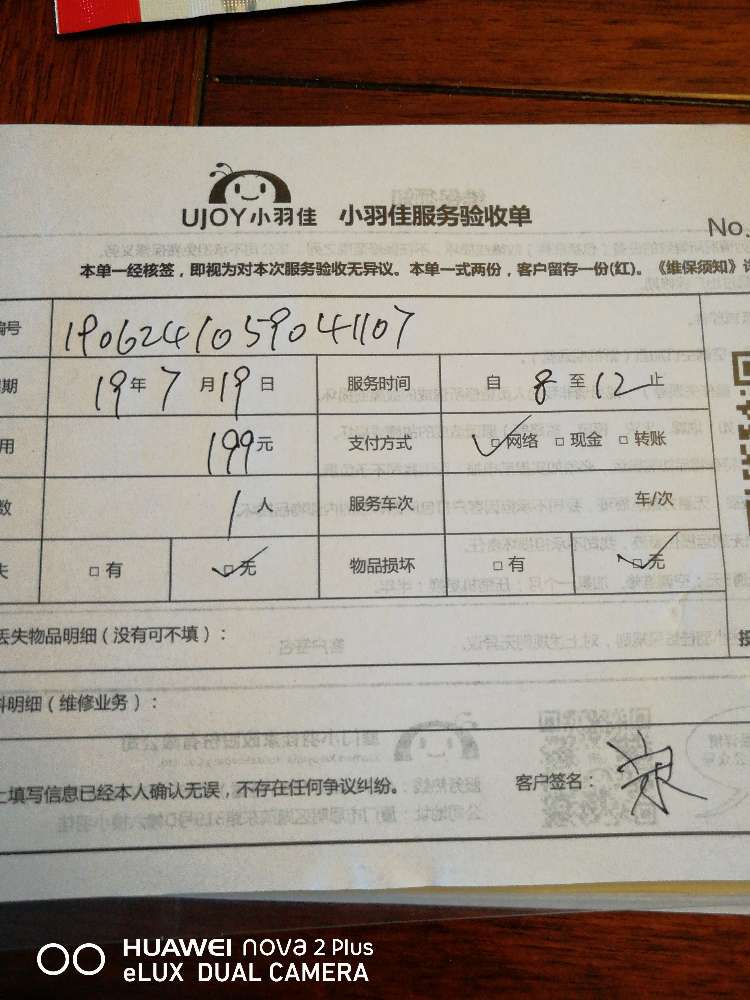 UJOY小羽佳 小羽佳服务验收单
No.
本单一经核签，即视为对本次服务验收无异议。本单一式两份，客户留存一份(红)。《维保须知》
编号 1906241059041107
期 19年7月19日 服务时间 自8至12止
用 199元 支付方式 ☑网络 □现金 □转账
数 1人 服务车次 车/次
失 □有 ☑无 物品损坏 □有 ☑无
丢失物品明细（没有可不填）：
料明细（维修业务）：
上填写信息已经本人确认无误，不存在任何争议纠纷。 客户签名：
HUAWEI nova 2 Plus
eLUX DUAL CAMERA